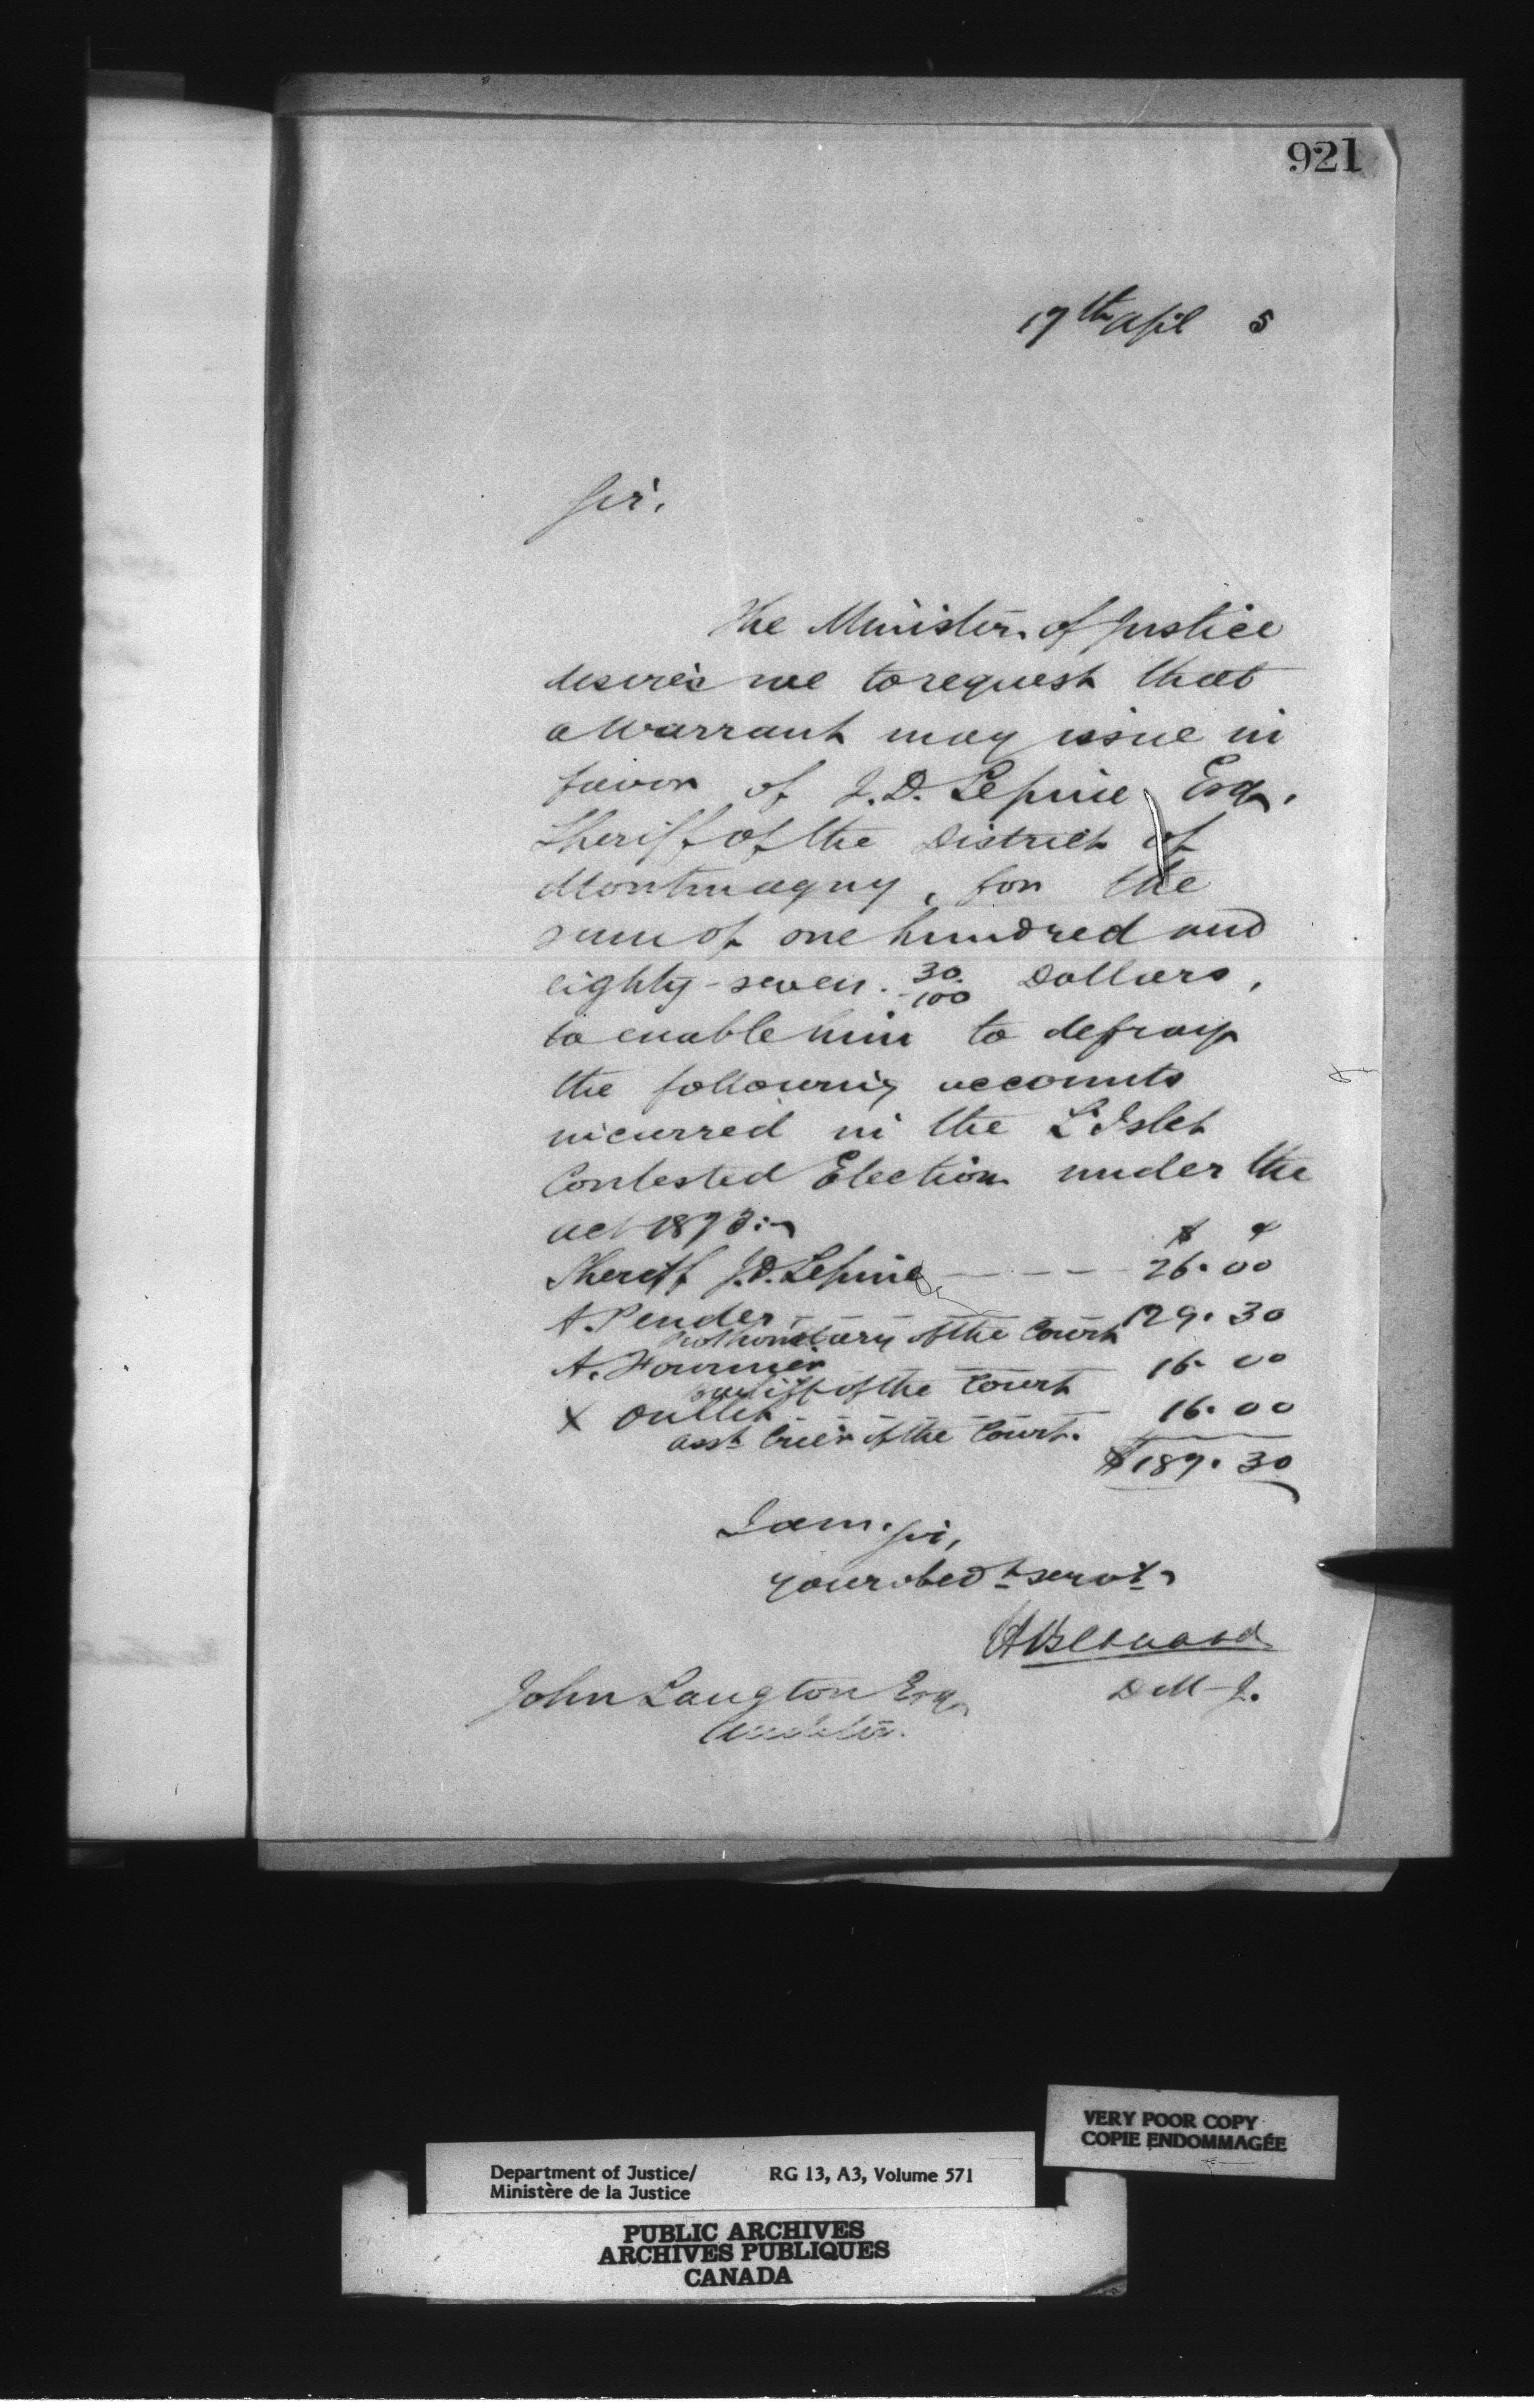 921
17th April 5
Sir,
The Minister of Justice
desires me to request that
a Warrant may issue in
favor of J.D. Lepine, Esq,
Sheriff of the District of
Montmagny, for the
sum of one hundred and
eighty-seven 30/100 Dollars,
to enable him to defray
the following accounts
incurred in the L'Islet
Contested Election under the
act 1873:-
$ ¢
Sheriff J.D. Lepine - - - 26.00
A. Pender, - - - - 129.30
Prothonotary of the Court
A. Fournier 16.00
bailiff of the Court
X Oullet - - - - - 16.00
asst Crier of the Court.
$187.30
I am, Sir,
your obedt servt,
H Bernard
D M J.
John Langton Esq,
Auditor.
VERY POOR COPY
COPIE ENDOMMAGÉE
Department of Justice/ RG 13, A3, Volume 571
Ministère de la Justice
PUBLIC ARCHIVES
ARCHIVES PUBLIQUES
CANADA